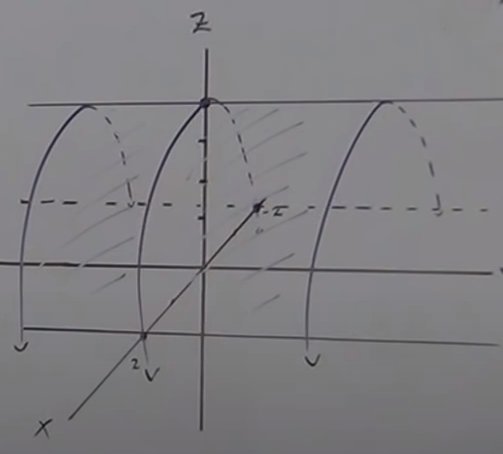 Z
-2
2
X